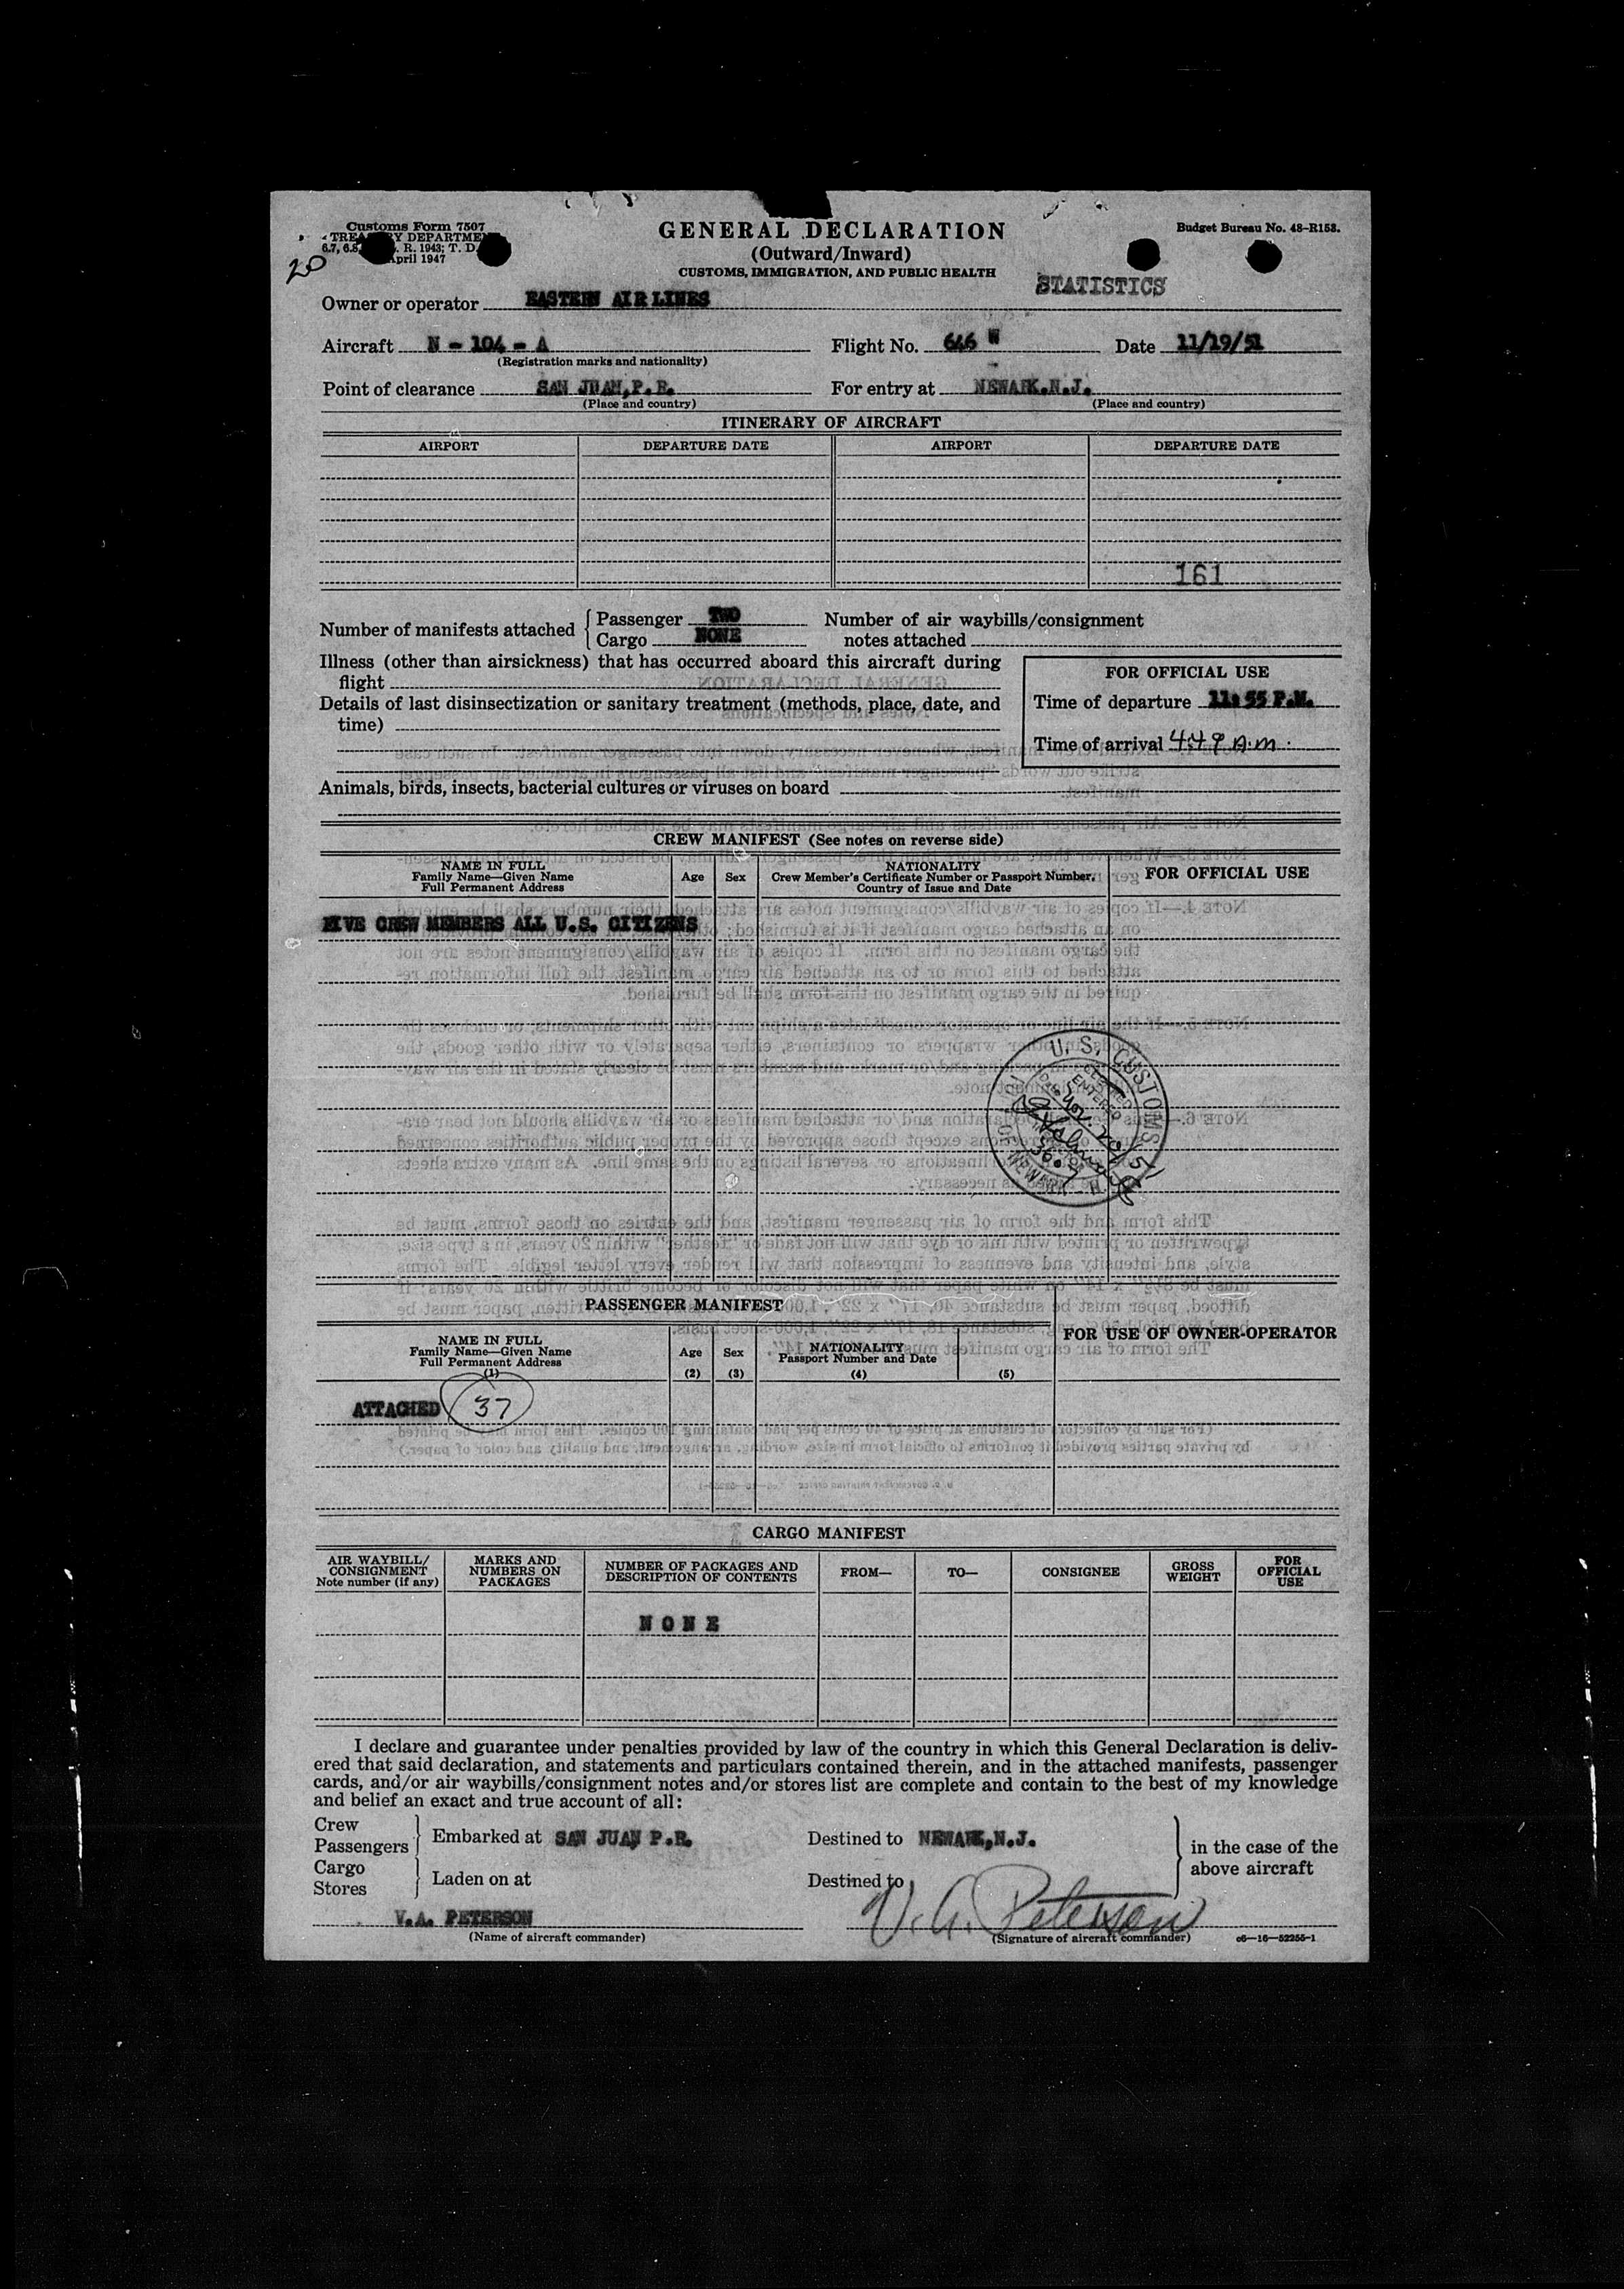 Customs Form 7507
TREASURY DEPARTMENT
6.7, 6.8, R. 1943; T. D.
April 1947
20
GENERAL DECLARATION
(Outward/Inward)
CUSTOMS, IMMIGRATION, AND PUBLIC HEALTH
Budget Bureau No. 48-R158.
STATISTICS
Owner or operator EASTERN AIR LINES
Aircraft N - 104 - A Flight No. 646 W Date 11/19/51
(Registration marks and nationality)
Point of clearance SAN JUAN, P.R. For entry at NEWARK.N.J.
(Place and country) (Place and country)
ITINERARY OF AIRCRAFT
AIRPORT DEPARTURE DATE AIRPORT DEPARTURE DATE
161
Number of manifests attached { Passenger TWO Number of air waybills/consignment
Cargo NONE notes attached
Illness (other than airsickness) that has occurred aboard this aircraft during
flight
Details of last disinsectization or sanitary treatment (methods, place, date, and
time)
FOR OFFICIAL USE
Time of departure 11:55 P.M.
Time of arrival 4:49 A.m.
Animals, birds, insects, bacterial cultures or viruses on board
CREW MANIFEST (See notes on reverse side)
NAME IN FULL
Family Name—Given Name
Full Permanent Address
Age Sex
NATIONALITY
Crew Member's Certificate Number or Passport Number,
Country of Issue and Date
FOR OFFICIAL USE
FIVE CREW MEMBERS ALL U.S. CITIZENS
U. S. CUSTOMS
ENTERED
Nov. 20 51
NEWARK
PASSENGER MANIFEST
NAME IN FULL
Family Name—Given Name
Full Permanent Address
(1)
Age
(2)
Sex
(3)
NATIONALITY
Passport Number and Date
(4) (5)
FOR USE OF OWNER-OPERATOR
ATTACHED 37
CARGO MANIFEST
AIR WAYBILL/
CONSIGNMENT
Note number (if any)
MARKS AND
NUMBERS ON
PACKAGES
NUMBER OF PACKAGES AND
DESCRIPTION OF CONTENTS
FROM— TO— CONSIGNEE
GROSS
WEIGHT
FOR
OFFICIAL
USE
N O N E
I declare and guarantee under penalties provided by law of the country in which this General Declaration is deliv-
ered that said declaration, and statements and particulars contained therein, and in the attached manifests, passenger
cards, and/or air waybills/consignment notes and/or stores list are complete and contain to the best of my knowledge
and belief an exact and true account of all:
Crew
Passengers } Embarked at SAN JUAN P.R. Destined to NEWARK,N.J.
Cargo
Stores } Laden on at Destined to
in the case of the
above aircraft
V.A. PETERSON V. A. Peterson
(Name of aircraft commander) (Signature of aircraft commander) c6—16—52255-1